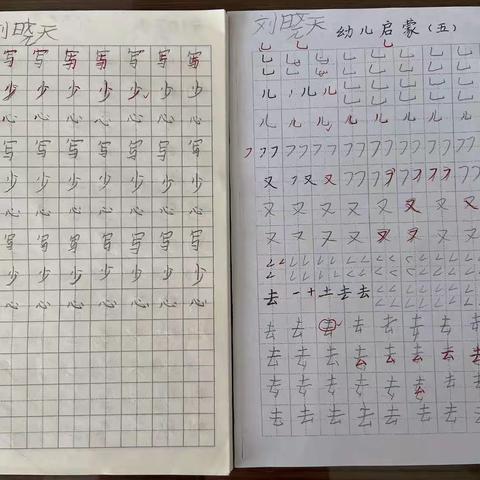 刘晓天
写 写 写 写 写 写 写
少 少 少 少 少 少 少
心 心 心 心 心 心 心
写 写 写 写 写 写 写
少 少 少 少 少 少 少
心 心 心 心 心 心 心
写 写 写 写 写 写 写
少 少 少 少 少 少 少
心 心 心 心 心 心 心
刘晓天 幼儿启蒙（五）
儿 丿 儿 儿
儿 儿 儿 儿 儿 儿 儿 儿
又 フ 又 又
又 又 又 又 又 又 又 又
又 又 又 又 又 又 又 又
去 一 十 土 去 去
去 去 去 去 去 去 去 去
去 去 去 去 去 去 去 去
去 去 去 去 去 去 去 去
去 去 去 去 去 去 去 去